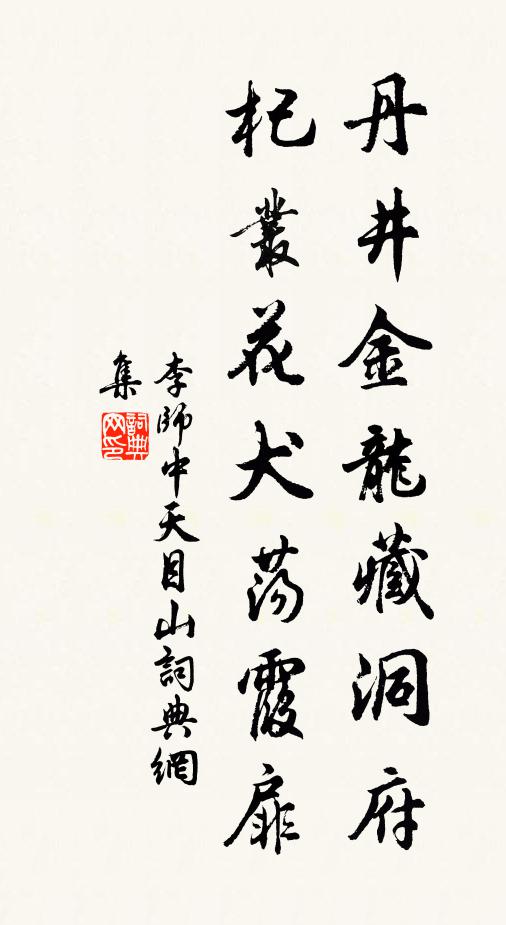 丹井金龍藏洞府
杞叢花犬荡霞扉
李師中天目山詞典網
集
詞典
网印